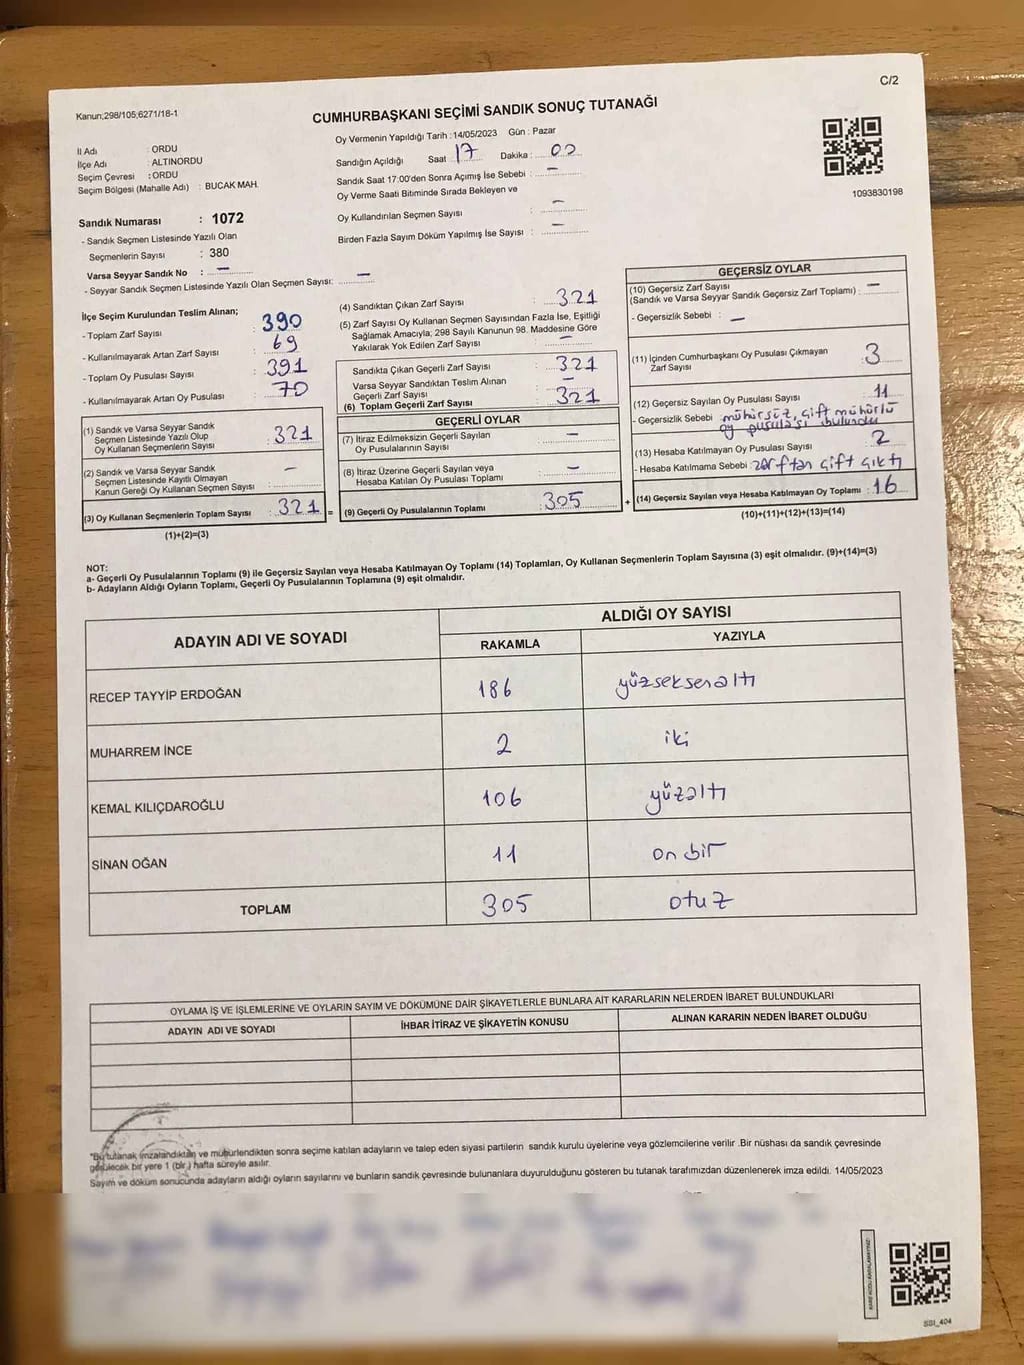 C/2
Kanun;298/105;6271/18-1
CUMHURBAŞKANI SEÇİMİ SANDIK SONUÇ TUTANAĞI
Oy Vermenin Yapıldığı Tarih :14/05/2023 Gün : Pazar
İl Adı : ORDU
İlçe Adı : ALTINORDU
Seçim Çevresi : ORDU
Seçim Bölgesi (Mahalle Adı) : BUCAK MAH.
Sandığın Açıldığı Saat 17 Dakika : 00
Sandık Saat 17:00'den Sonra Açımış İse Sebebi : —
Oy Verme Saati Bitiminde Sırada Bekleyen ve
Oy Kullandırılan Seçmen Sayısı : —
Birden Fazla Sayım Döküm Yapılmış İse Sayısı : —
1093830198
Sandık Numarası : 1072
- Sandık Seçmen Listesinde Yazılı Olan
Seçmenlerin Sayısı : 380
Varsa Seyyar Sandık No : —
- Seyyar Sandık Seçmen Listesinde Yazılı Olan Seçmen Sayısı: —
İlçe Seçim Kurulundan Teslim Alınan;
- Toplam Zarf Sayısı : 390
- Kullanılmayarak Artan Zarf Sayısı : 69
- Toplam Oy Pusulası Sayısı : 391
- Kullanılmayarak Artan Oy Pusulası : 70
(1) Sandık ve Varsa Seyyar Sandık
Seçmen Listesinde Yazılı Olup
Oy Kullanan Seçmenlerin Sayısı : 321
(2) Sandık ve Varsa Seyyar Sandık
Seçmen Listesinde Kayıtlı Olmayan
Kanun Gereği Oy Kullanan Seçmen Sayısı : —
(3) Oy Kullanan Seçmenlerin Toplam Sayısı : 321 =
(1)+(2)=(3)
(4) Sandıktan Çıkan Zarf Sayısı : 321
(5) Zarf Sayısı Oy Kullanan Seçmen Sayısından Fazla İse, Eşitliği
Sağlamak Amacıyla; 298 Sayılı Kanunun 98. Maddesine Göre
Yakılarak Yok Edilen Zarf Sayısı : —
Sandıkta Çıkan Geçerli Zarf Sayısı : 321
Varsa Seyyar Sandıktan Teslim Alınan
Geçerli Zarf Sayısı : —
(6) Toplam Geçerli Zarf Sayısı : 321
GEÇERLİ OYLAR
(7) İtiraz Edilmeksizin Geçerli Sayılan
Oy Pusulası Sayısı : —
(8) İtiraz Üzerine Geçerli Sayılan veya
Hesaba Katılan Oy Pusulası Toplamı : —
(9) Geçerli Oy Pusulalarının Toplamı : 305 +
GEÇERSİZ OYLAR
(10) Geçersiz Zarf Sayısı
(Sandık ve Varsa Seyyar Sandık Geçersiz Zarf Toplamı) : —
- Geçersizlik Sebebi : —
(11) İçinden Cumhurbaşkanı Oy Pusulası Çıkmayan
Zarf Sayısı : 3
(12) Geçersiz Sayılan Oy Pusulası Sayısı : 11
- Geçersizlik Sebebi : mühürsüz, çift mühürlü
oy pusulası bulundu
(13) Hesaba Katılmayan Oy Pusulası Sayısı : 2
- Hesaba Katılmama Sebebi : zarftan çift çıktı
(14) Geçersiz Sayılan veya Hesaba Katılmayan Oy Toplamı : 16
(10)+(11)+(12)+(13)=(14)
NOT:
a- Geçerli Oy Pusulalarının Toplamı (9) ile Geçersiz Sayılan veya Hesaba Katılmayan Oy Toplamı (14) Toplamları, Oy Kullanan Seçmenlerin Toplam Sayısına (3) eşit olmalıdır. (9)+(14)=(3)
b- Adayların Aldığı Oyların Toplamı, Geçerli Oy Pusulalarının Toplamına (9) eşit olmalıdır.
ADAYIN ADI VE SOYADI ALDIĞI OY SAYISI
RAKAMLA YAZIYLA
RECEP TAYYİP ERDOĞAN 186 yüzseksenaltı
MUHARREM İNCE 2 iki
KEMAL KILIÇDAROĞLU 106 yüzaltı
SİNAN OĞAN 11 on bir
TOPLAM 305 otuz
OYLAMA İŞ VE İŞLEMLERİNE VE OYLARIN SAYIM VE DÖKÜMÜNE DAİR ŞİKAYETLERLE BUNLARA AİT KARARLARIN NELERDEN İBARET BULUNDUKLARI
ADAYIN ADI VE SOYADI İHBAR İTİRAZ VE ŞİKAYETİN KONUSU ALINAN KARARIN NEDEN İBARET OLDUĞU
*Bu tutanak imzalandıktan ve mühürlendikten sonra seçime katılan adayların ve talep eden siyasi partilerin sandık kurulu üyelerine veya gözlemcilerine verilir .Bir nüshası da sandık çevresinde
görülecek bir yere 1 (bir ) hafta süreyle asılır.
Sayım ve döküm sonucunda adayların aldığı oyların sayılarını ve bunların sandık çevresinde bulunanlara duyurulduğunu gösteren bu tutanak tarafımızdan düzenlenerek imza edildi. 14/05/2023
SSI_404